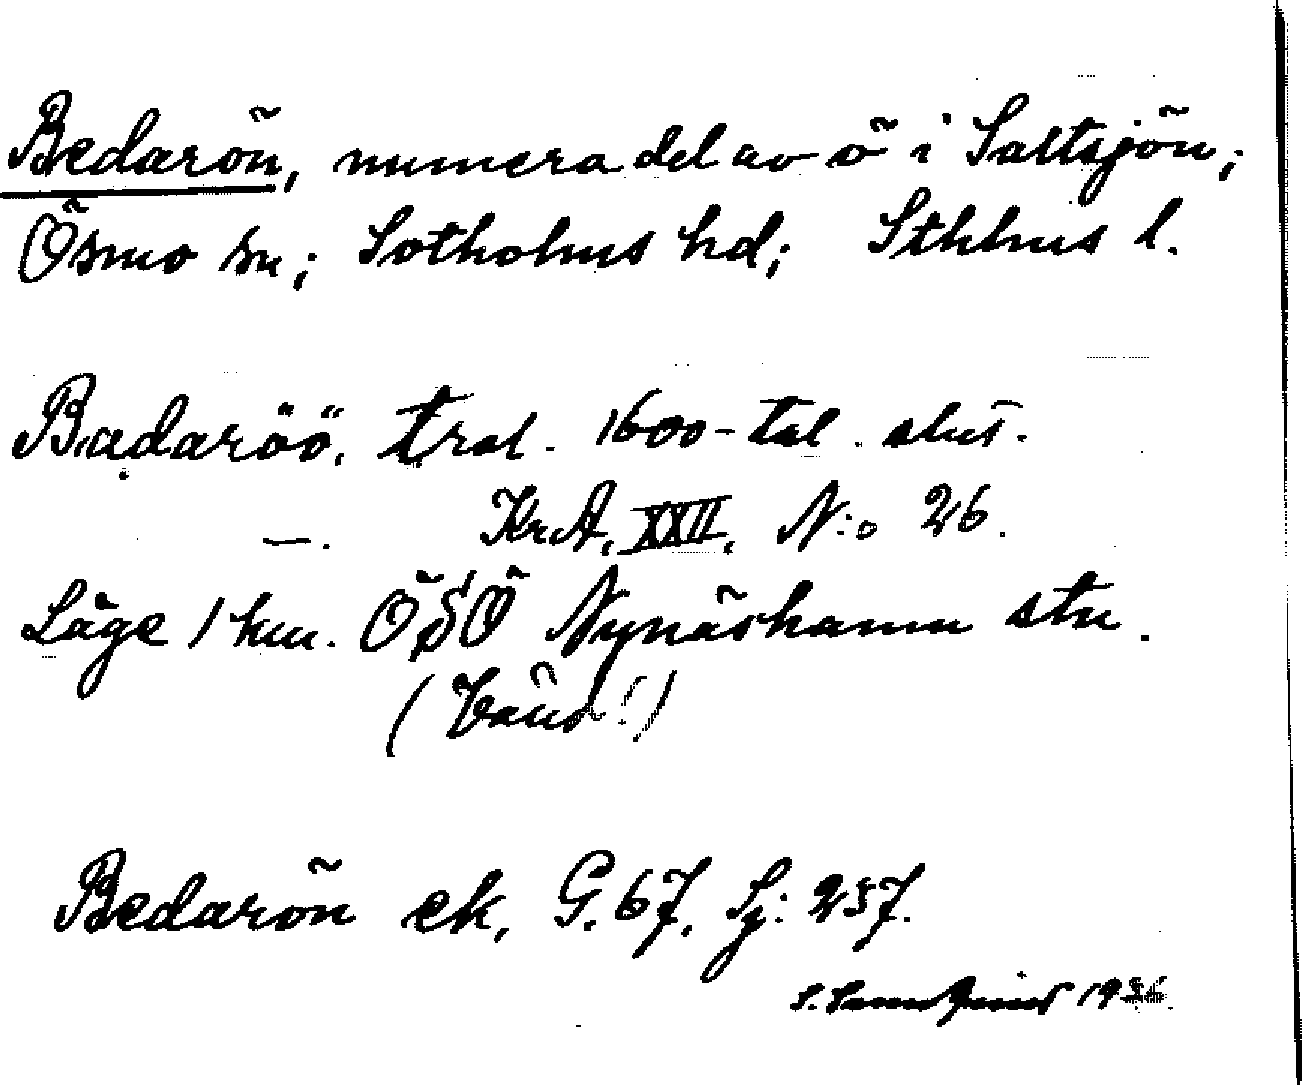 Bedarön, numera del av ö i Saltsjön;
Ösmo sn; Sotholms hd; Sthlms l.
Badaröö. trol. 1600-tal. slut.
—. KrA, XXII, N:o 26.
Läge 1 km. ÖSÖ Nynäshamn stn.
Bedarön ek, G. 67, Sj: 257.
S. 1936